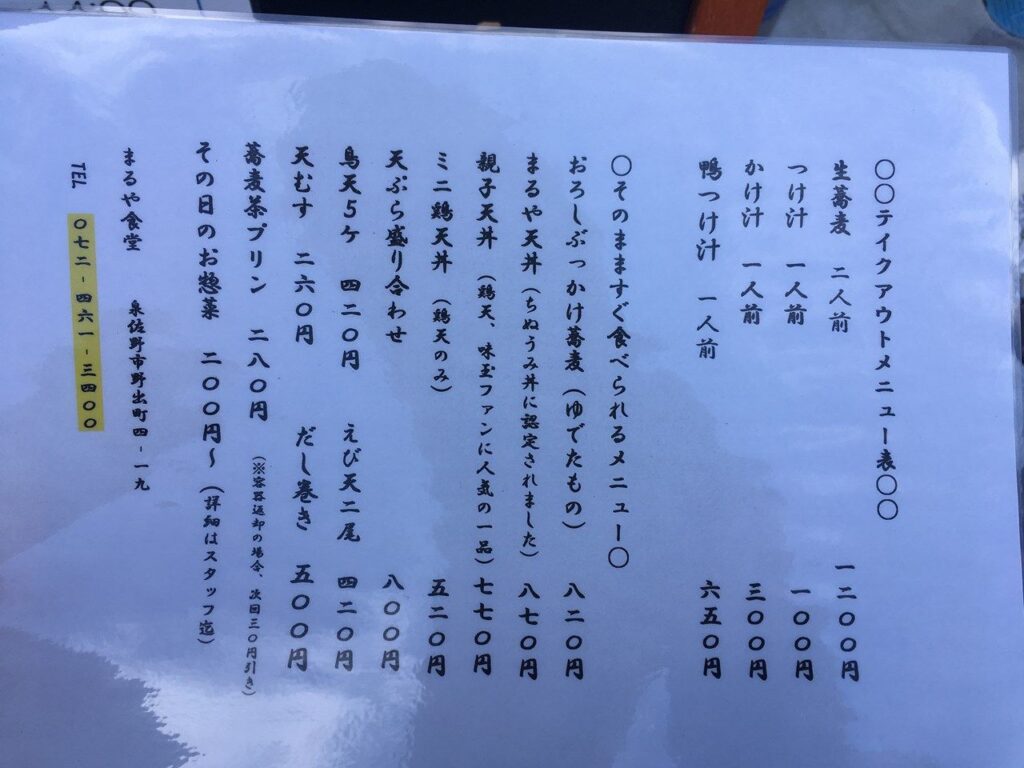 〇〇テイクアウトメニュー表〇〇
生蕎麦 二人前 一二〇〇円
つけ汁 一人前 一〇〇円
かけ汁 一人前 三〇〇円
鴨つけ汁 一人前 六五〇円
〇そのまますぐ食べられるメニュー〇
おろしぶっかけ蕎麦（ゆでたもの） 八二〇円
まるや天丼（ちぬうみ丼に認定されました） 八七〇円
親子天丼（鶏天、味玉ファンに人気の一品） 七七〇円
ミニ鶏天丼（鶏天のみ） 五二〇円
天ぷら盛り合わせ 八〇〇円
鳥天５ケ 四二〇円 えび天二尾 四二〇円
天むす 二六〇円 だし巻き 五〇〇円
蕎麦茶プリン 二八〇円（※容器返却の場合、次回三〇円引き）
その日のお惣菜 二〇〇円～（詳細はスタッフ迄）
まるや食堂 泉佐野市野出町四－一九
TEL 〇七二－四六一－三四〇〇